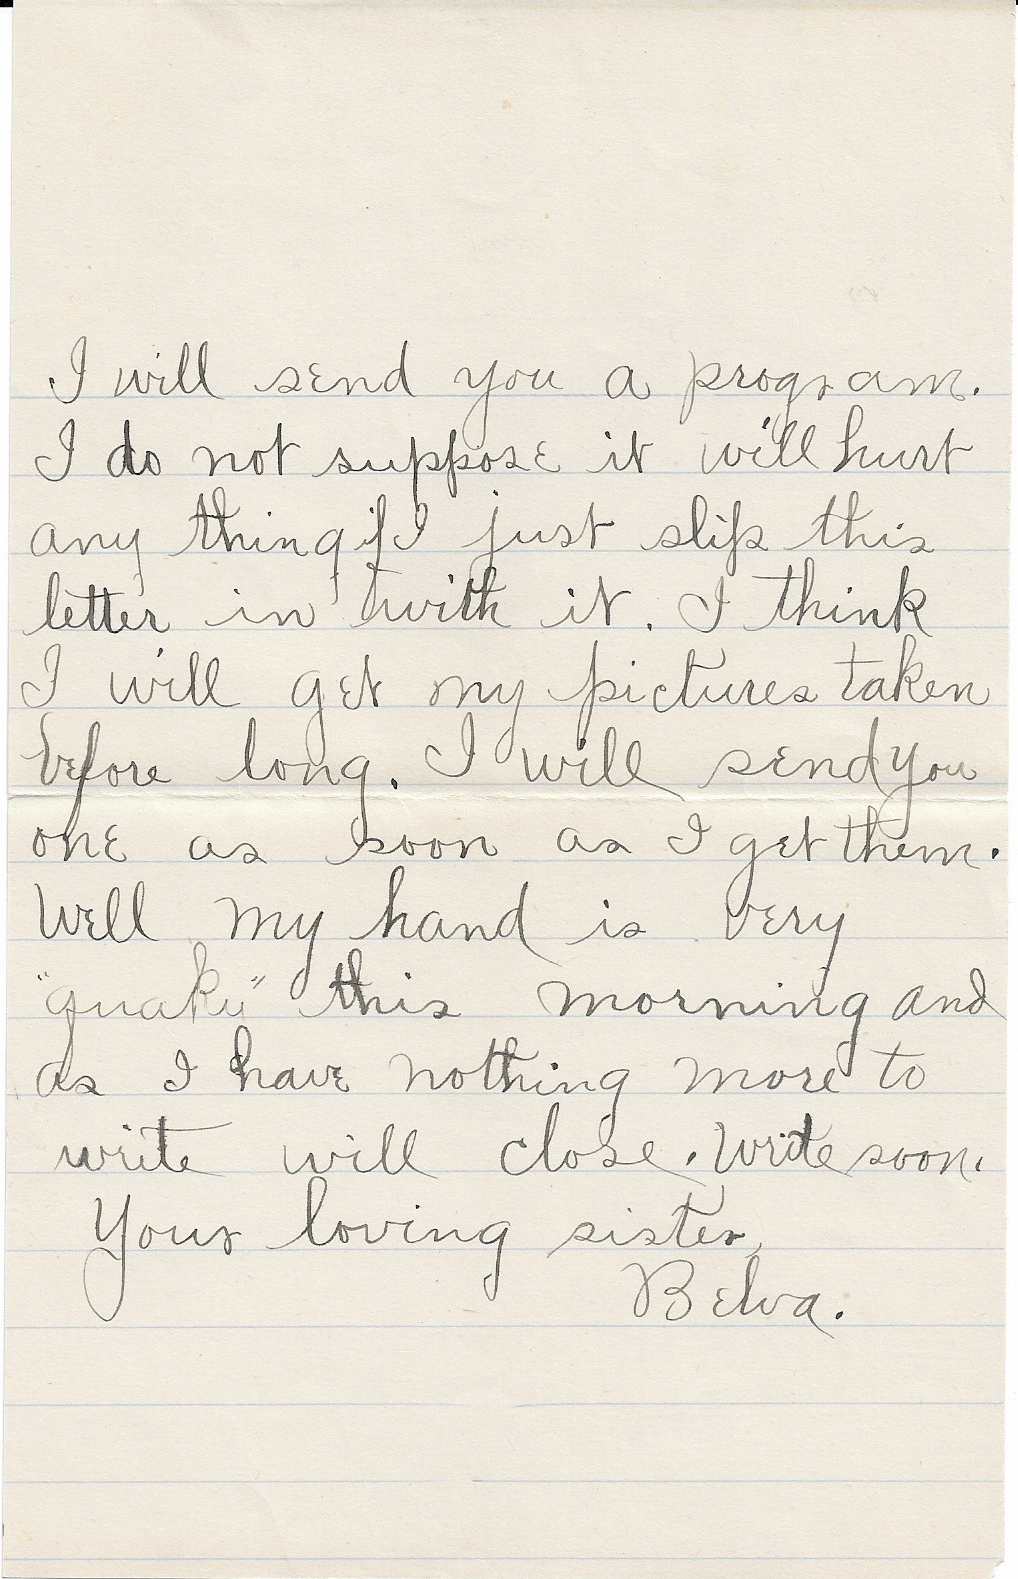 I will send you a program.
I do not suppose it will hurt
any thing if I just slip this
letter in with it. I think
I will get my pictures taken
before long. I will send you
one as soon as I get them.
Well my hand is very
"quaky" this morning and
as I have nothing more to
write will close. Write soon.
Your loving sister,
Belva.